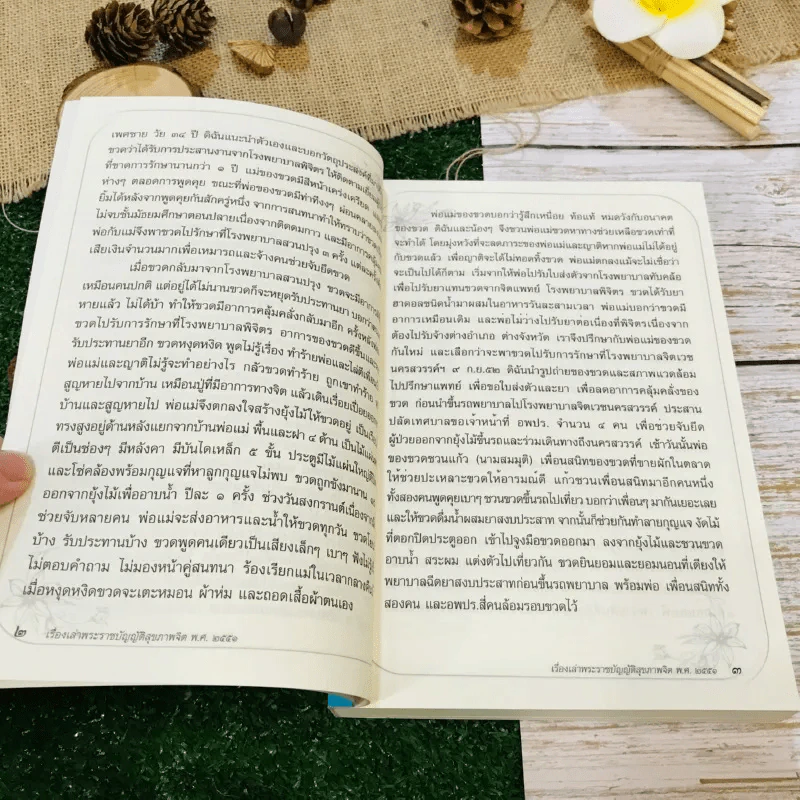 เพศชาย วัย ๓๔ ปี ดิฉันแนะนำตัวเองและบอกวัตถุประสงค์ที่
ขวดว่าได้รับการประสานงานจากโรงพยาบาลพิจิตร ให้ติดตาม
ที่ขาดการรักษานานกว่า ๑ ปี แม่ของขวดมีสีหน้าเคร่งเครียด
ห่างๆ ตลอดการพูดคุย ขณะที่พ่อของขวดมีท่าทีงงๆ ผ่อนคลาย
ยิ้มได้หลังจากพูดคุยกันสักครู่หนึ่ง จากการสนทนาทำให้ทราบว่าขวด
ไม่จบชั้นมัธยมศึกษาตอนปลายเนื่องจากติดดมกาว และมีอาการ
พ่อกับแม่จึงพาขวดไปรักษาที่โรงพยาบาลสวนปรุง ๓ ครั้ง แต่
เสียเงินจำนวนมากเพื่อเหมารถและจ้างคนช่วยจับยึดขวด
เมื่อขวดกลับมาจากโรงพยาบาลสวนปรุง ขวดจะมีอาการดี
เหมือนคนปกติ แต่อยู่ได้ไม่นานขวดก็จะหยุดรับประทานยา บอกว่า
หายแล้ว ไม่ได้บ้า ทำให้ขวดมีอาการคลุ้มคลั่งกลับมาอีก ครั้งหลัง
ขวดไปรับการรักษาที่โรงพยาบาลพิจิตร อาการของขวดดีขึ้นและ
รับประทานยาอีก ขวดหงุดหงิด พูดไม่รู้เรื่อง ทำร้ายพ่อและไล่ตี
พ่อแม่และญาติไม่รู้จะทำอย่างไร กลัวขวดทำร้าย ถูกเขาทำร้าย
สูญหายไปจากบ้าน เหมือนปู่ที่มีอาการทางจิต แล้วเดินเรื่อยเปื่อยออก
บ้านและสูญหายไป พ่อแม่จึงตกลงใจสร้างยุ้งไม้ให้ขวดอยู่ เป็น
ทรงสูงอยู่ด้านหลังแยกจากบ้านพ่อแม่ พื้นและฝา ๔ ด้าน เป็นไม้แผ่น
ตีเป็นช่องๆ มีหลังคา มีบันไดเหล็ก ๕ ขั้น ประตูมีไม้แผ่นใหญ่
และโซ่คล้องพร้อมกุญแจที่หาลูกกุญแจไม่พบ ขวดถูกขังมานาน
ออกจากยุ้งไม้เพื่ออาบน้ำ ปีละ ๑ ครั้ง ช่วงวันสงกรานต์เนื่องจาก
ช่วยจับหลายคน พ่อแม่จะส่งอาหารและน้ำให้ขวดทุกวัน ขวด
บ้าง รับประทานบ้าง ขวดพูดคนเดียวเป็นเสียงเล็กๆ เบาๆ ฟังไม่
ไม่ตอบคำถาม ไม่มองหน้าคู่สนทนา ร้องเรียกแม่ในเวลากลางคืน
เมื่อหงุดหงิดขวดจะเตะหมอน ผ้าห่ม และถอดเสื้อผ้าตนเอง
๒ เรื่องเล่าพระราชบัญญัติสุขภาพจิต พ.ศ. ๒๕๕๑
พ่อแม่ของขวดบอกว่ารู้สึกเหนื่อย ท้อแท้ หมดหวังกับอนาคต
ของขวด ดิฉันและน้องๆ จึงชวนพ่อแม่ขวดหาทางช่วยเหลือขวดเท่าที่
จะทำได้ โดยมุ่งหวังที่จะลดภาระของพ่อแม่และญาติหากพ่อแม่ไม่ได้อยู่
กับขวดแล้ว เพื่อญาติจะได้ไม่ทอดทิ้งขวด พ่อแม่ตกลงแม้จะไม่เชื่อว่า
จะเป็นไปได้ก็ตาม เริ่มจากให้พ่อไปรับใบส่งตัวจากโรงพยาบาลทับคล้อ
เพื่อไปรับยาแทนขวดจากจิตแพทย์ โรงพยาบาลพิจิตร ขวดได้รับยา
ฮาดอลชนิดน้ำมาผสมในอาหารวันละสามเวลา พ่อแม่บอกว่าขวดมี
อาการเหมือนเดิม และพ่อไม่ว่างไปรับยาต่อเนื่องที่พิจิตรเนื่องจาก
ต้องไปรับจ้างต่างอำเภอ ต่างจังหวัด เราจึงปรึกษากับพ่อแม่ของขวด
กันใหม่ และเลือกว่าจะพาขวดไปรับการรักษาที่โรงพยาบาลจิตเวช
นครสวรรค์ฯ ๙ ก.ย.๕๒ ดิฉันนำรูปถ่ายของขวดและสภาพแวดล้อม
ไปปรึกษาแพทย์ เพื่อขอใบส่งตัวและยา เพื่อลดอาการคลุ้มคลั่งของ
ขวด ก่อนนำขึ้นรถพยาบาลไปโรงพยาบาลจิตเวชนครสวรรค์ ประสาน
ปลัดเทศบาลขอเจ้าหน้าที่ อพปร. จำนวน ๔ คน เพื่อช่วยจับยึด
ผู้ป่วยออกจากยุ้งไม้ขึ้นรถและร่วมเดินทางถึงนครสวรรค์ เช้าวันนั้นพ่อ
ของขวดชวนแก้ว (นามสมมุติ) เพื่อนสนิทของขวดที่ขายผักในตลาด
ให้ช่วยปะเหลาะขวดให้อารมณ์ดี แก้วชวนเพื่อนสนิทมาอีกคนหนึ่ง
ทั้งสองคนพูดคุยเบาๆ ชวนขวดขึ้นรถไปเที่ยว บอกว่าเพื่อนๆ มากันเยอะเลย
และให้ขวดดื่มน้ำผสมยาสงบประสาท จากนั้นก็ช่วยกันทำลายกุญแจ งัดไม้
ที่ตอกปิดประตูออก เข้าไปจูงมือขวดออกมา ลงจากยุ้งไม้และชวนขวด
อาบน้ำ สระผม แต่งตัวไปเที่ยวกัน ขวดยินยอมและยอมนอนที่เตียงให้
พยาบาลฉีดยาสงบประสาทก่อนขึ้นรถพยาบาล พร้อมพ่อ เพื่อนสนิททั้ง
สองคน และอพปร.สี่คนล้อมรอบขวดไว้
เรื่องเล่าพระราชบัญญัติสุขภาพจิต พ.ศ. ๒๕๕๑ ๓